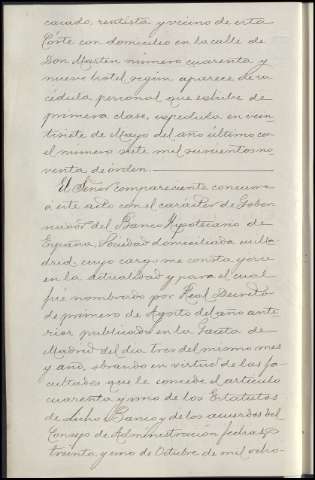 casado, rentista y vecino de esta
Córte con domicilio en la calle de
San Martin número cuarenta y
nueve hotel segun aparece de su
cédula personal que exhibe de
primera clase, expedida en vein
tisiete de Mayo del año último con
el número siete mil seiscientos no
venta de órden.
El Señor compareciente concurre
a este acto con el carácter de Gober
nador del Banco Hipotecario de
España, Sociedad domiciliada en Ma
drid, cuyo cargo me consta ejerce
en la actualidad y para el cual
fué nombrado por Real Decreto
de primero de Agosto del año ante
rior publicado en la Gaceta de
Madrid del dia tres del mismo mes
y año, obrando en virtud de las fa-
cultades que le concede el artículo
cuarenta y uno de los Estatutos
de dicho Banco y de los acuerdos del
Consejo de Administración fechas
treinta y uno de Octubre de mil ocho-